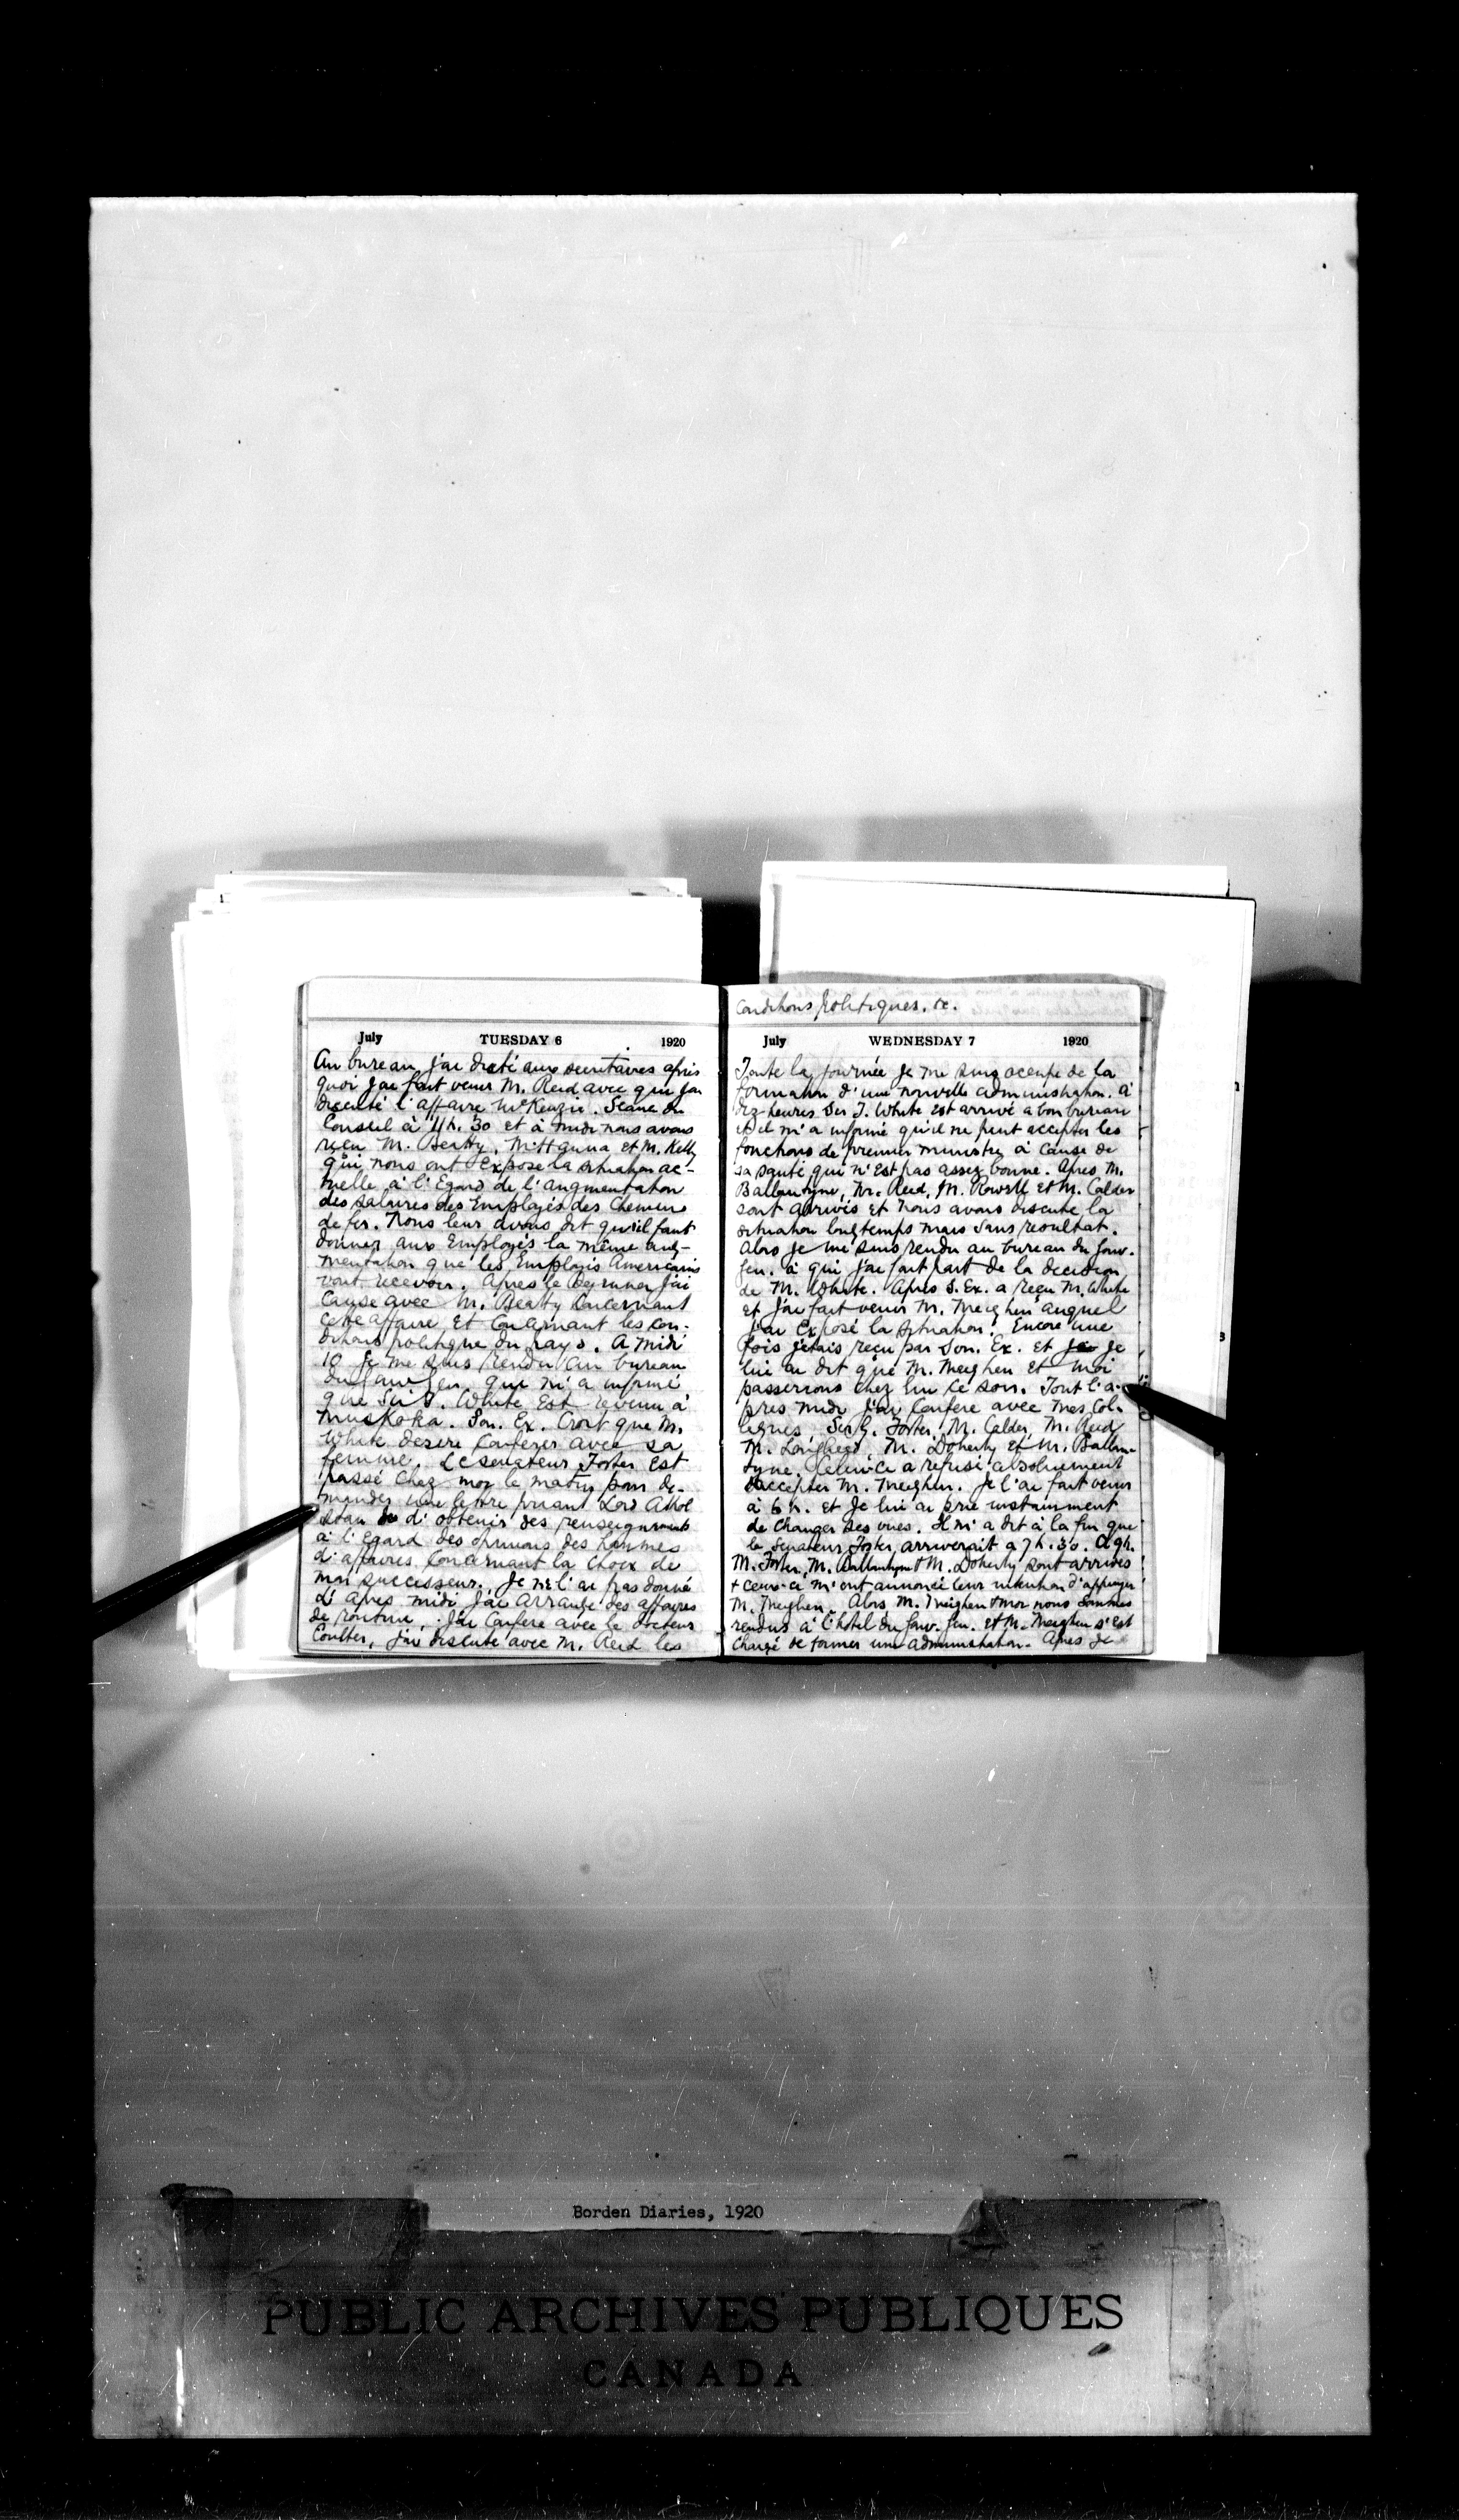 July TUESDAY 6 1920
Au bureau j'ai dicté aux secretaires après
quoi j'ai fait venir M. Reid avec qui j'ai
discuté l'affaire McKenzie. Séance du
Conseil à 11 h. 30 et à midi nous avons
reçu M. Beatty, M. Hanna et M. Kelly
qui nous ont exposé la situation ac-
tuelle à l'Egard de l'augmentation
des salaires des Employés des Chemins
de fer. Nous leur avons dit qu'il faut
donner aux Employés la même aug-
mentation que les Employés Americains
vont recevoir. Apres le dejeuner j'ai
Causé avec M. Beatty Concernant
cette affaire et Concernant les con-
ditions politique du pays. A midi
10 je me suis rendu au bureau
du Gouv Gen. qui m'a informé
que Sir T. White est revenu à
Muskoka. Son. Ex. Croit que M.
White desire Conferer avec sa
femme. Le senateur Foster est
passé chez moi le matin pour de-
mander une lettre priant Lord Athol
stan de d'obtenir des renseignements
à l'Egard des opinions des hommes
d'affaires Concernant la choix de
mon successeur. Je ne l'ai pas donné
L'apres midi j'ai arrangé des affaires
de routine. J'ai Conferé avec le docteur
Coulter, j'ai discuté avec M. Reid les
Conditions politiques. &c.
July WEDNESDAY 7 1920
Toute la journée je me suis occupé de la
formation d'une nouvelle administration. A
dix heures Sir T. White est arrivé a bon bureau
et il m'a informé qu'il ne peut accepter les
fonctions de premier ministre à cause de
sa santé qui n'est pas assez bonne. Apres M.
Ballantyne, Mr. Reid, M. Rowell et M. Calder
sont arrivés et nous avons discuté la
situation longtemps mais sans resultat.
Alors je me suis rendu au bureau du Gouv.
Gen. à qui j'ai fait part de la decision
de M. White. Apres S. Ex. a reçu M. White
et j'ai fait venir M. Meighen auquel
j'ai Exposé la situation. Encore une
fois j'etais reçu par Son. Ex. et je
lui ai dit que M. Meighen et moi
passerions chez lui ce soir. Tout l'a-
pres midi j'ai Conferé avec mes Col-
legues, Sir G. Foster, M. Calder, M. Reid
M. Lougheed, M. Doherty et M. Ballan-
tyne. Celui-ci a refusé absolument
d'accepter M. Meighen. Je l'ai fait venir
à 6 h. et je lui ai prié instamment
de changer ses vues. Il m'a dit à la fin que
le Senateur Foster arriverait a 7 h. 30. A 9 h.
M. Foster, M. Ballantyne & M. Doherty sont arrivés
+ ceux-ci m'ont annoncé leur intention d'appuyer
M. Meighen. Alors M. Meighen & moi nous sommes
rendus à l'hotel du Gouv. Gen. et M. Meighen s'est
chargé de former une administration. Apres je
Borden Diaries, 1920
PUBLIC ARCHIVES PUBLIQUES
CANADA